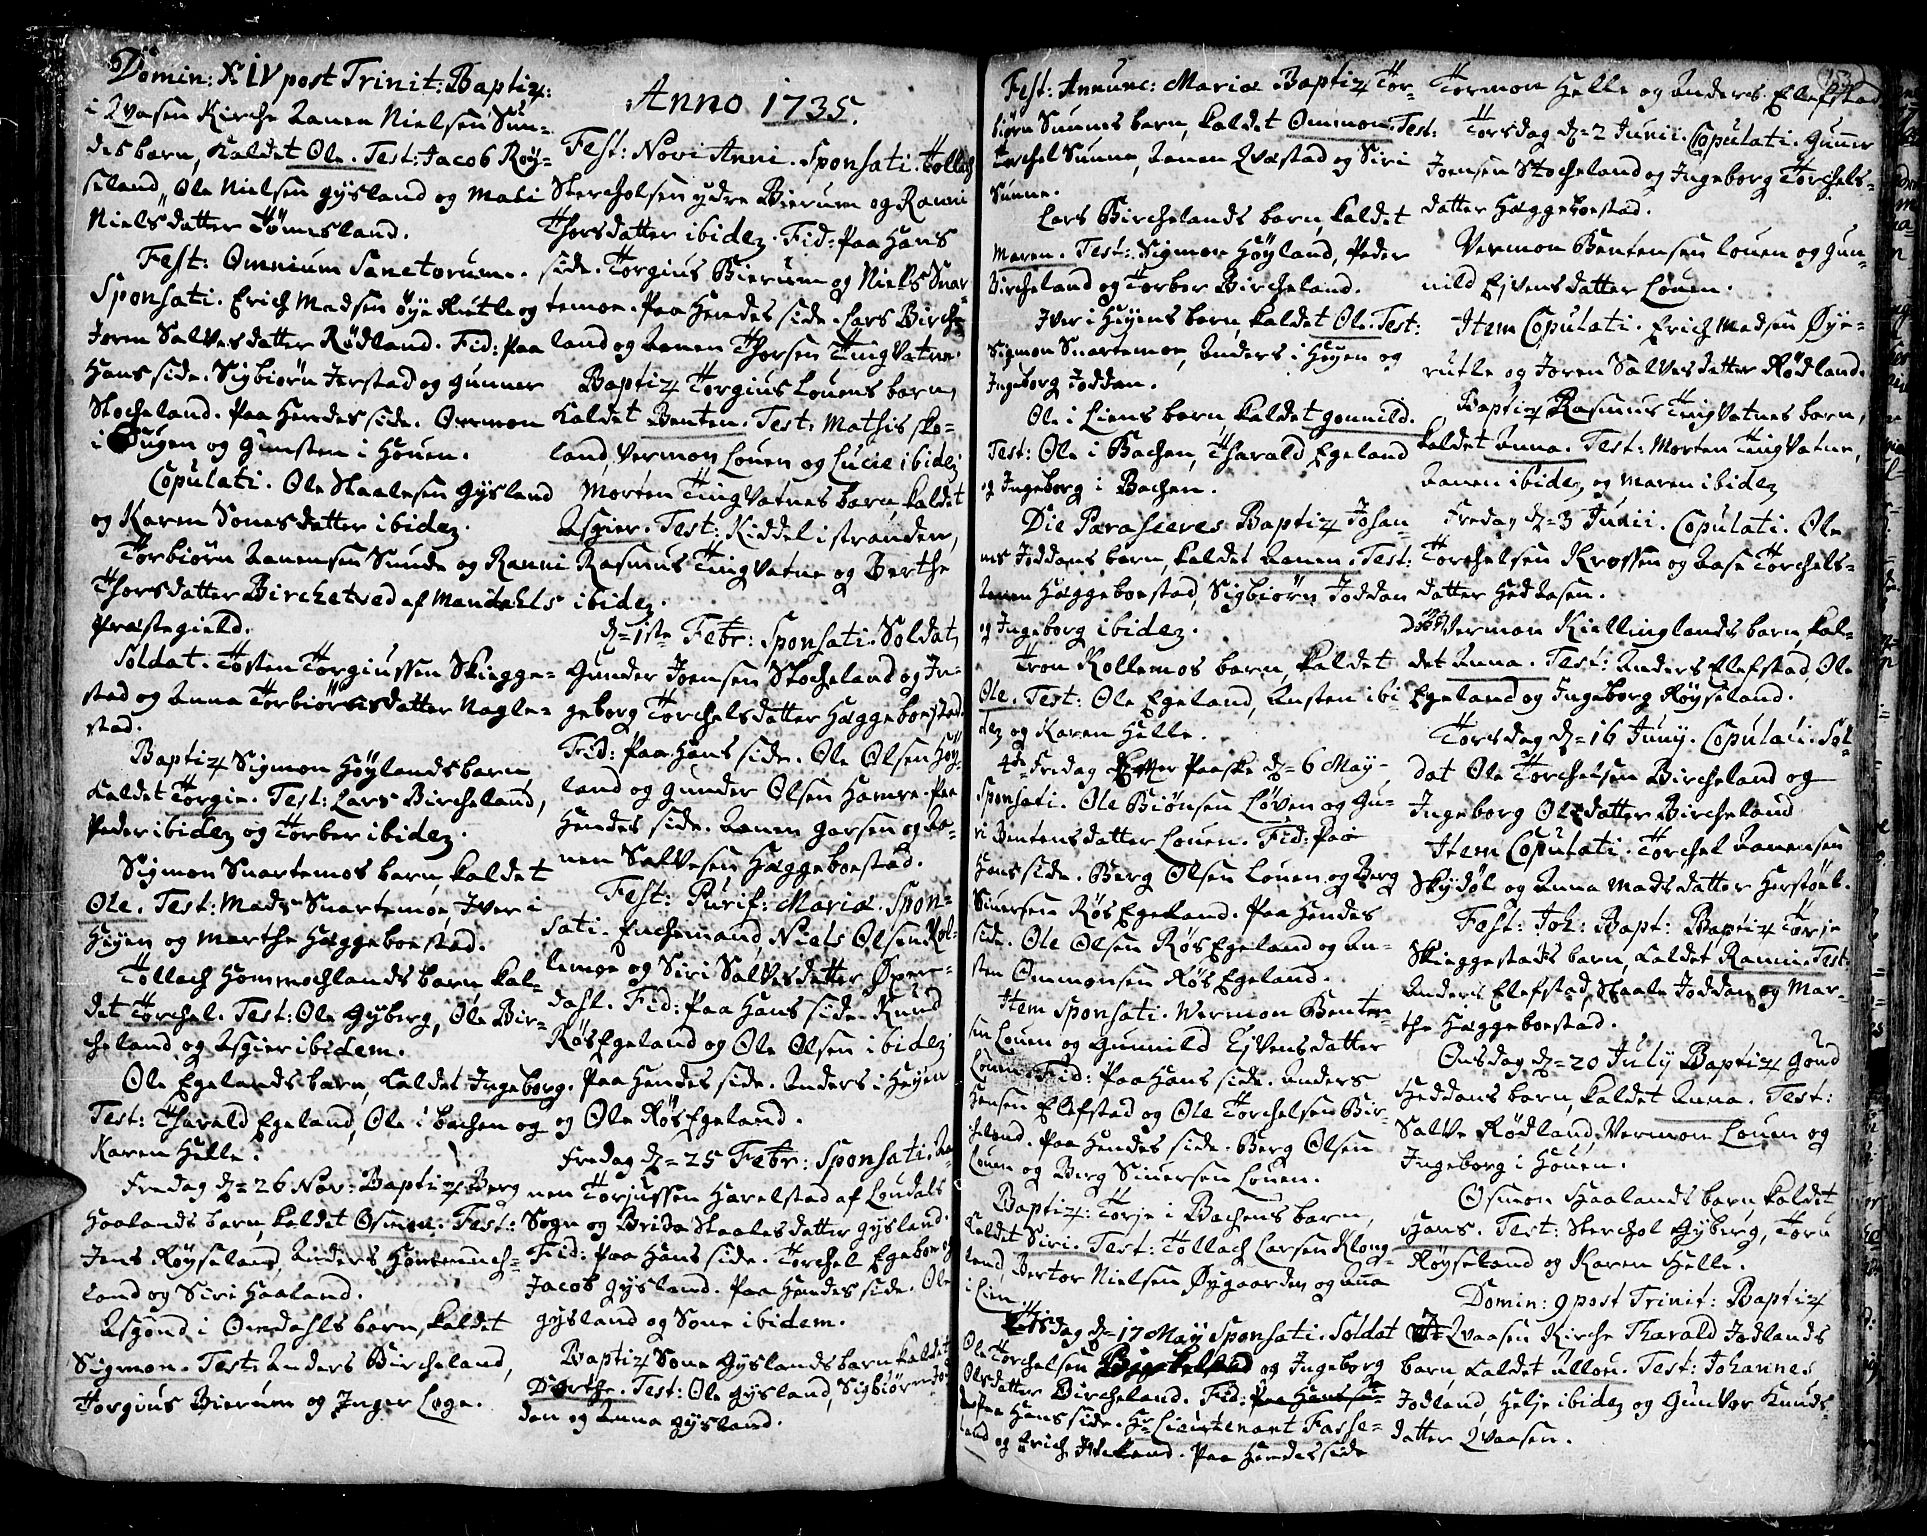 Domin: XIV post Trinit: Baptiz:
i Qvasen Kirche Aanen Nielsen Sun-
des barn, kaldet Ole. Test: Jacob Røy-
seland, Ole Nielsen Gysland og Mali
Nielsdatter Tømesland.
Fest: Omnium Sanctorum.
Sponsati. Erich Madsen Øye Rutle og
Joren Salvesdatter Rødland. Fid: Paa
Hans side. Sigbiørn Jerstad og Gunner
Stocheland. Paa Hendes side. Ommon
i Hougen og Gunsten i Houen.
Copulati. Ole Staalesen Gysland
og Karen Sonesdatter ibidez.
Torbiørn Aanensen Sunde og Ranni
Thorsdatter Birchetved af Mandahls
Præstegield.
Soldat. Tosten Torgiussen Skiegge-
stad og Anna Torbiørnsdatter Nagle-
stad.
Baptiz Sigmon Høylands barn,
kaldet Torgie. Test: Lars Bircheland,
Peder ibidez og Torber ibidez.
Sigmon Snartemos barn, kaldet
Ole. Test: Mads Snartemoe, Iver i
Heyen og Marthe Hæggeboestad.
Tollach Hommochlands barn kal-
det Torchel. Test: Ole Gyberg, Ole Bir-
cheland og Asgier ibidem.
Ole Egelands barn, kaldet Ingeborg.
Test: Tharald Egeland, Ole i Bachen og
Karen Helle.
Fredag d= 26 Nov: Baptiz Berg
Haalands barn, kaldet Osmon. Test:
Jens Røyseland, Anders Hommoch-
land og Siri Haaland.
Asgond i Omdahls barn, kaldet
Sigmon. Test: Anders Bircheland,
Torgius Bierum og Inger Lega.
Anno 1735.
Fest: Novi Anni. Sponsati. Tollach
Stercholsen ydre Bierum og Ranni
Thorsdatter ibidez. Fid: Paa Hans
side. Torgius Bierum og Niels Snar-
temoe. Paa Hendes side. Lars Birche-
land og Aanen Thorsen Tingvatne.
Baptiz Torgius Louens barn,
kaldet Benten. Test: Mathis Ske-
land, Vermon Louen og Lucie ibidez
Morten Tingvatnes barn, kaldet
Asgier. Test: Kiddel i Stranden,
Rasmus Tingvatne og Berthe
ibidez.
d= 1ste Febr: Sponsati. Soldat,
Gunder Joensen Stocheland og In-
geborg Torchelsdatter Hæggeboestad.
Fid: Paa Hans side. Ole Olsen Høy-
land og Gunder Olsen Hamre. Paa
Hendes side. Aanen Garsen og Aa-
nen Salvesen Hæggeboestad.
Fest: Purif: Mariæ. Spon-
sati. Enchemand, Niels Olsen Rol-
lemoe og Siri Salvesdatter Øxen-
dahl. Fid: Paa Hans side. Knud
Røsegeland og Ole Olsen ibidez
Paa Hendes side. Anders i Heyen
og Ole Røsegeland.
Fredag d= 25 Febr: Sponsati. Aa-
nen Torjussen Harelstad af Loudals
Sogn og Brida Staalesdatter Gysland.
Fid: Paa Hans side. Torchel Egeboe og
Jacob Gysland. Paa Hendes side. Ole
Gysland og Sone ibidem.
Baptiz Sone Gyslands barn kaldet
Dorthe. Test: Ole Gysland, Sigbiørn Jod-
den og Anna Gysland.
Fest: Annunc: Mariæ Baptiz Tor-
biørn Sunnes barn, kaldet Ommon. Test:
Torchel Sunne, Aanen Qvæstad og Siri
Sunne.
Lars Birchelands barn, kaldet
Maren. Test: Sigmon Høyland, Peder
Bircheland og Torber Bircheland.
Iver i Heyens barn, kaldet Ole. Test:
Sigmon Snartemoe, Anders i Heyen og
Ingeborg Joddan.
Ole i Liens barn, kaldet Gonnild.
Test: Ole i Bachen, Tharald Egeland
og Ingeborg i Bachen.
Die Parasceves Baptiz Johan-
nes Joddans barn, kaldet Aanen. Test:
Aanen Hæggeboestad, Sigbiørn Joddan
og Ingeborg ibidez.
Tron Rollemos barn, kaldet
Ole. Test: Ole Egeland, Austen ibi
dez og Karen Helle.
4de Fredag Efter Paaske d= 6 May
Sponsati. Ole Biønsen Løven og Gu-
ri Bentensdatter Louen. Fid: Paa
Hans side. Berg Olsen Louen og Berg
Siuersen Røsegeland. Paa Hendes
side. Ole Olsen Røsegeland og Au-
sten Ommonsen Røsegeland.
Item Sponsati. Vermon Benten-
sen Louen og Gunnild Ejvensdatter
Louen. Fid: Paa Hans side. Anders
Hansen Elefstad og Ole Torchelsen Bir-
cheland. Paa Hendes side. Berg Olsen
Louen og Berg Siuersen Louen.
Baptiz: Torje i Bachens barn,
kaldet Siri. Test: Tollach Larsen Klong-
land, Bertor Nielsen Øygaarden og Aasa
i Lien.
Tisdag d= 17 May Sponsati. Soldat
Ole Torchelsen Bircheland og Ingeborg
Olsdatter Bircheland. Fid: Paa Hans si-
de Paa Hans side. Hr Lieutenant Fasse-
land og Erich Fidseland. Paa Hendes side
153
Tormon Helle og Anders Elefstad,
Torsdag d= 2 Junii. Copulati. Gunner
Joensen Stocheland og Ingeborg Torchels-
datter Hæggeboestad.
Vermon Bentensen Louen og Gun-
nild Ejvensdatter Louen.
Item Copulati. Erich Madsen Øye-
rutle og Joren Salvesdatter Rødland.
Baptiz Rasmus Tingvatnes barn,
kaldet Anna. Test: Morten Tingvatne,
Aanen ibidez og Maren ibidez
Fredag d= 3 Junii. Copulati. Ole
Torchelsen Krossen og Aase Torchels-
datter Hedlasen.
Vermon Kiellinglands barn, kal-
det Anna. Test: Anders Elefstad, Ole
Egeland og Ingeborg Røyseland.
Torsdag d= 16 Juny. Copulati. Sol-
dat Ole Torchelsen Bircheland og
Ingeborg Olsdatter Bircheland
Item Copulati. Torchel Aanensen
Skydøl og Anna Madsdatter Herstøel.
Fest: Joh: Bapt: Baptiz Torje
Skieggestads barn, kaldet Ranni. Test:
Anders Elefstad, Staale Joddan og Mar-
the Hæggeboestad.
Onsdag d= 20 July Baptiz Gond
Heddans barn, kaldet Anna. Test:
Salve Rødland, Vermon Louen og
Ingeborg i Houen.
Osmon Haalands barn, kaldet
Hans. Test: Sterchol Gyberg, Toru
Røyseland og Karen Helle.
Domin: 9 post Trinit: Baptiz
Qvaasen Kirche Tharald Jodlands
barn, kaldet Ullou. Test: Johannes
Jodland, Helje ibidez og Gunvor Knuds-
datter Qvaasen.